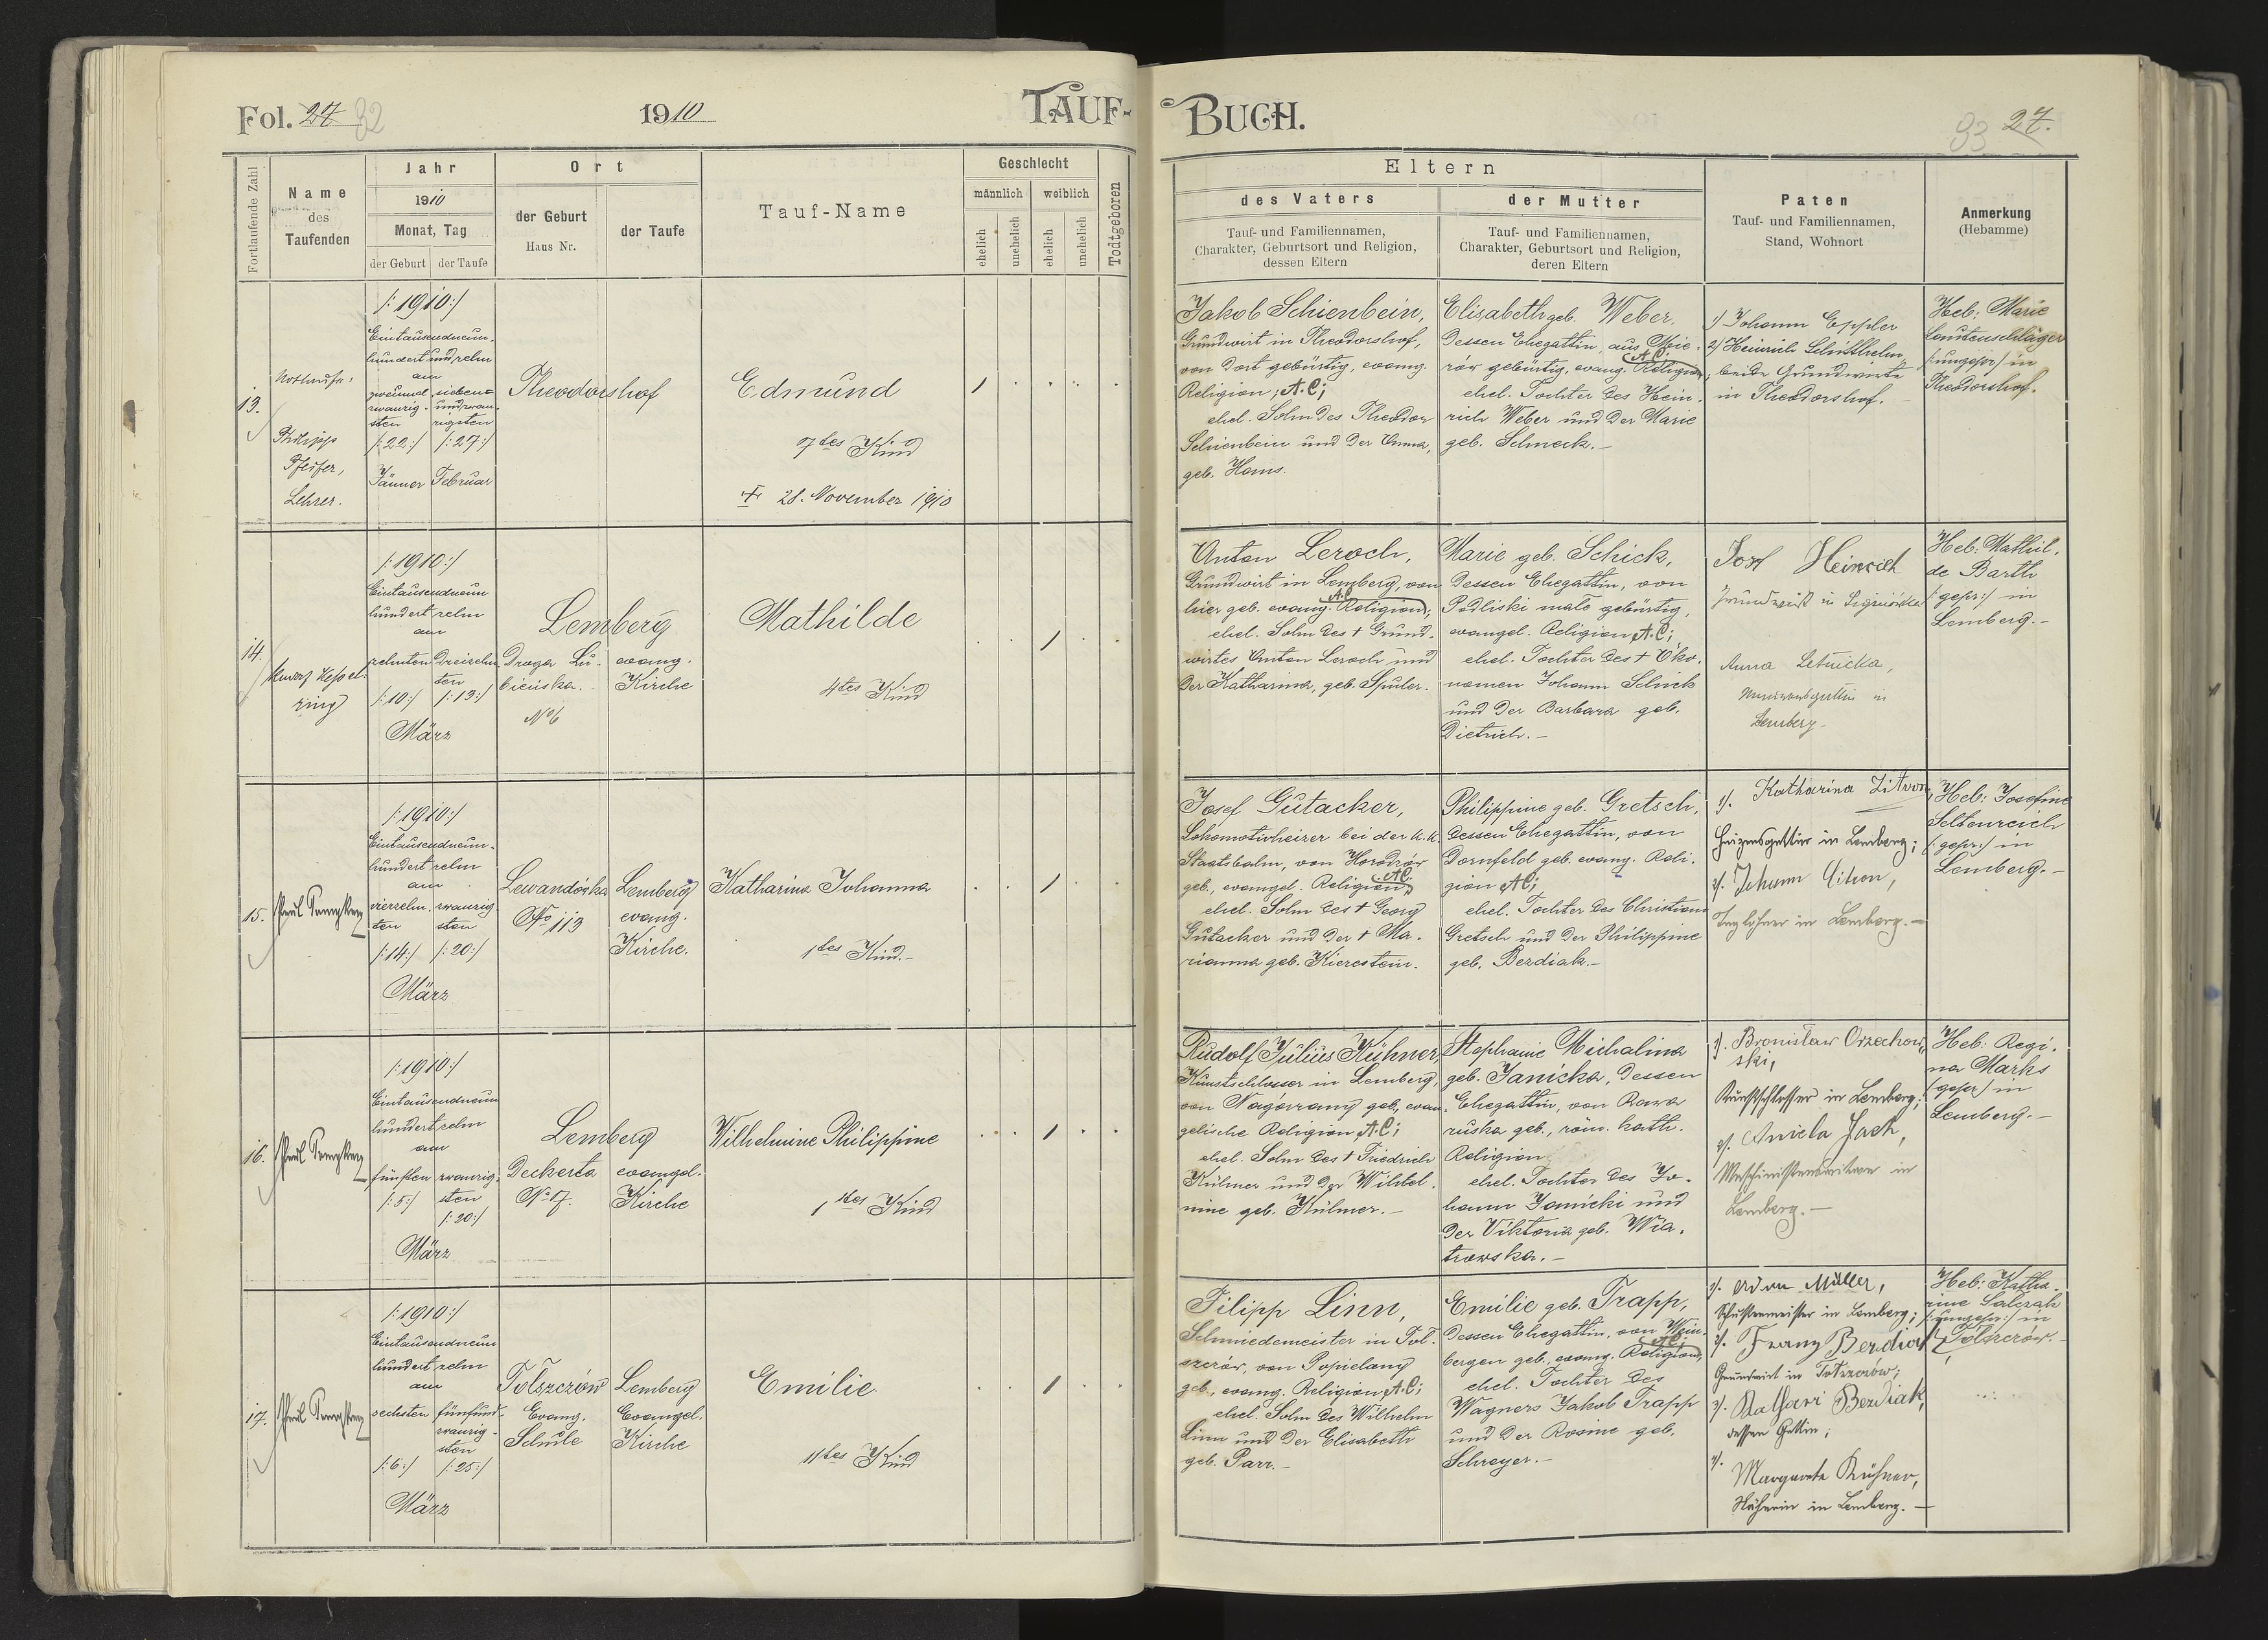 Fol. 27 32
1910
TAUF-
BUCH.
33 27.
Fortlaufende Zahl
Name
des
Taufenden
Jahr
1910
Monat, Tag
der Geburt
der Taufe
Ort
der Geburt
Haus Nr.
der Taufe
Tauf-Name
Geschlecht
männlich
weiblich
ehelich
unehelich
ehelich
unehelich
Todtgeboren
Eltern
des Vaters
Tauf- und Familiennamen,
Charakter, Geburtsort und Religion,
dessen Eltern
der Mutter
Tauf- und Familiennamen,
Charakter, Geburtsort und Religion,
deren Eltern
Paten
Tauf- und Familiennamen,
Stand, Wohnort
Anmerkung
(Hebamme)
13.
Nottaufe:
Philipp
Pfeifer,
Lehrer.
/:1910:/
Eintausendneun-
hundert und zehn
am
zweiund-
zwanzig-
sten
/:22:/
Jänner
sieben-
undzwan-
zigsten
/:27:/
Februar
Theodorshof
Edmund
7tes Kind
† 28. November 1910
Jakob Schienbein,
Grundwirt in Theodorshof,
von dort gebürtig, evang.
Religion, A.C;
ehel. Sohn des Theodor
Schienbein und der Anna,
geb. Hams.
Elisabeth geb. Weber.
dessen Ehegattin, aus
rów gebürtig, evang. A.C. Religion,
ehel. Tochter des Hein-
rich Weber und der Marie
geb. Schmeck.-
1) Johann Eppler
2) Heinrich Schitthelm,
beide Grundwirte
in Theodorshof.
Heb: Marie
Lautenschläger
/:ungepr:/ in
Theodorshof.
14.
Kessel-
ring
/:1910:/
Eintausendneun
hundert zehn
am
zehnten
/:10:/
dreizehn-
ten
/:13:/
März
Lemberg
Droga Lu-
bieńska.
No 6
evang.
Kirche
Mathilde
4tes Kind
Anton Leroch,
Grundwirt in Lemberg, von
hier geb. evang. A.C Religion;
ehel. Sohn des † Grund-
wirtes Anton Leroch und
der Katharina, geb. Spuler.
Marie geb. Schick,
dessen Ehegattin, von
Podliski małe gebürtig,
evangel. Religion A.C;
ehel. Tochter des † Öko-
nomen Johann Schick
und der Barbara geb.
Dietrich.-
Josef Heinrich
Grundwirt in
Anna Letnicka,
in
Lemberg-
Heb: Mathil-
de Barth
/:gepr:/ in
Lemberg.-
15.
Paul
/:1910:/
Eintausendneun-
hundert zehn
am
vierzehn-
ten
/:14:/
zwanzig-
sten
/:20:/
März
Lewandówka
No 113
Lemberg
evang.
Kirche.
Katharina Johanna
1tes Kind.-
Josef Gutacker,
Lokomotivheizer bei der k.k.
Staatsbahn, von Horodzów
geb., evangel. A.C. Religion,
ehel. Sohn des † Georg
Gutacker und der † Ma-
rianna geb. Kierestein.
Philippine geb. Gretsch,
dessen Ehegattin, von
Dornfeld geb. evang. Reli-
gion A.C;
ehel. Tochter des Christian
Gretsch und der Philippine
geb. Berdiak.-
1). Katharina
Heizersgattin in Lemberg;
2). Johann
Taglöhner in Lemberg.-
Heb: Josefine
Seltenreich
/:gepr:/ in
Lemberg.-
16.
Paul
/:1910:/
Eintausendneun
hundert zehn
am
fünften
/:5:/
zwanzig-
sten
/:20:/
März
Lemberg
Deckerta
No 17.
evangel.
Kirche
Wilhelmine Philippine
1tes Kind
Rudolf Julius Kühner,
Kunstschlosser in Lemberg,
von Nagórzany geb., evan-
gelische Religion A.C;
ehel. Sohn des † Friedrich
Kühner und der Wilhel-
mine geb. Kühner.-
Stephanie Michalina
geb. Janicka, dessen
Ehegattin, von Rawa
ruska geb., röm. kath.
Religion
ehel. Tochter des Jo-
hann Janicki und
der Viktoria geb. Wia-
trowska.-
1). Bronisław Orzechow-
ski,
Kunstschlosser in Lemberg;
2). Aniela Jach,
Maschinistenswitwe in
Lemberg.-
Heb: Regi-
na Marks
/:gepr:/ in
Lemberg.-
17.
Paul
/:1910:/
Eintausendneun
hundert zehn
am
sechsten
/:6:/
fünfund-
zwanzig-
sten
/:25:/
März
Tołszczów
Evang.
Schule
Lemberg
Evangel.
Kirche
Emilie
11tes Kind
Filipp Linn,
Schmiedemeister in Toł-
szczów, von Popielany
geb., evang. Religion A.C;
ehel. Sohn des Wilhelm
Linn und der Elisabeth
geb. Parr.-
Emilie geb. Trapp,
dessen Ehegattin, von Wein-
bergen geb., evang. A.C; Religion,
ehel. Tochter des
Wagners Jakob Trapp
und der Rosine geb.
Schreyer.-
1). Adam Müller,
Schustermeister in Lemberg;
2). Franz Berdiak
Grundwirt in Tołszczów;
3). Berdiak,
dessen Gattin;
4).
Margarete Kühner,
Näherin in Lemberg.-
Heb: Katha-
rine Salczak
/:ungepr:/ in
Tołszczów.-